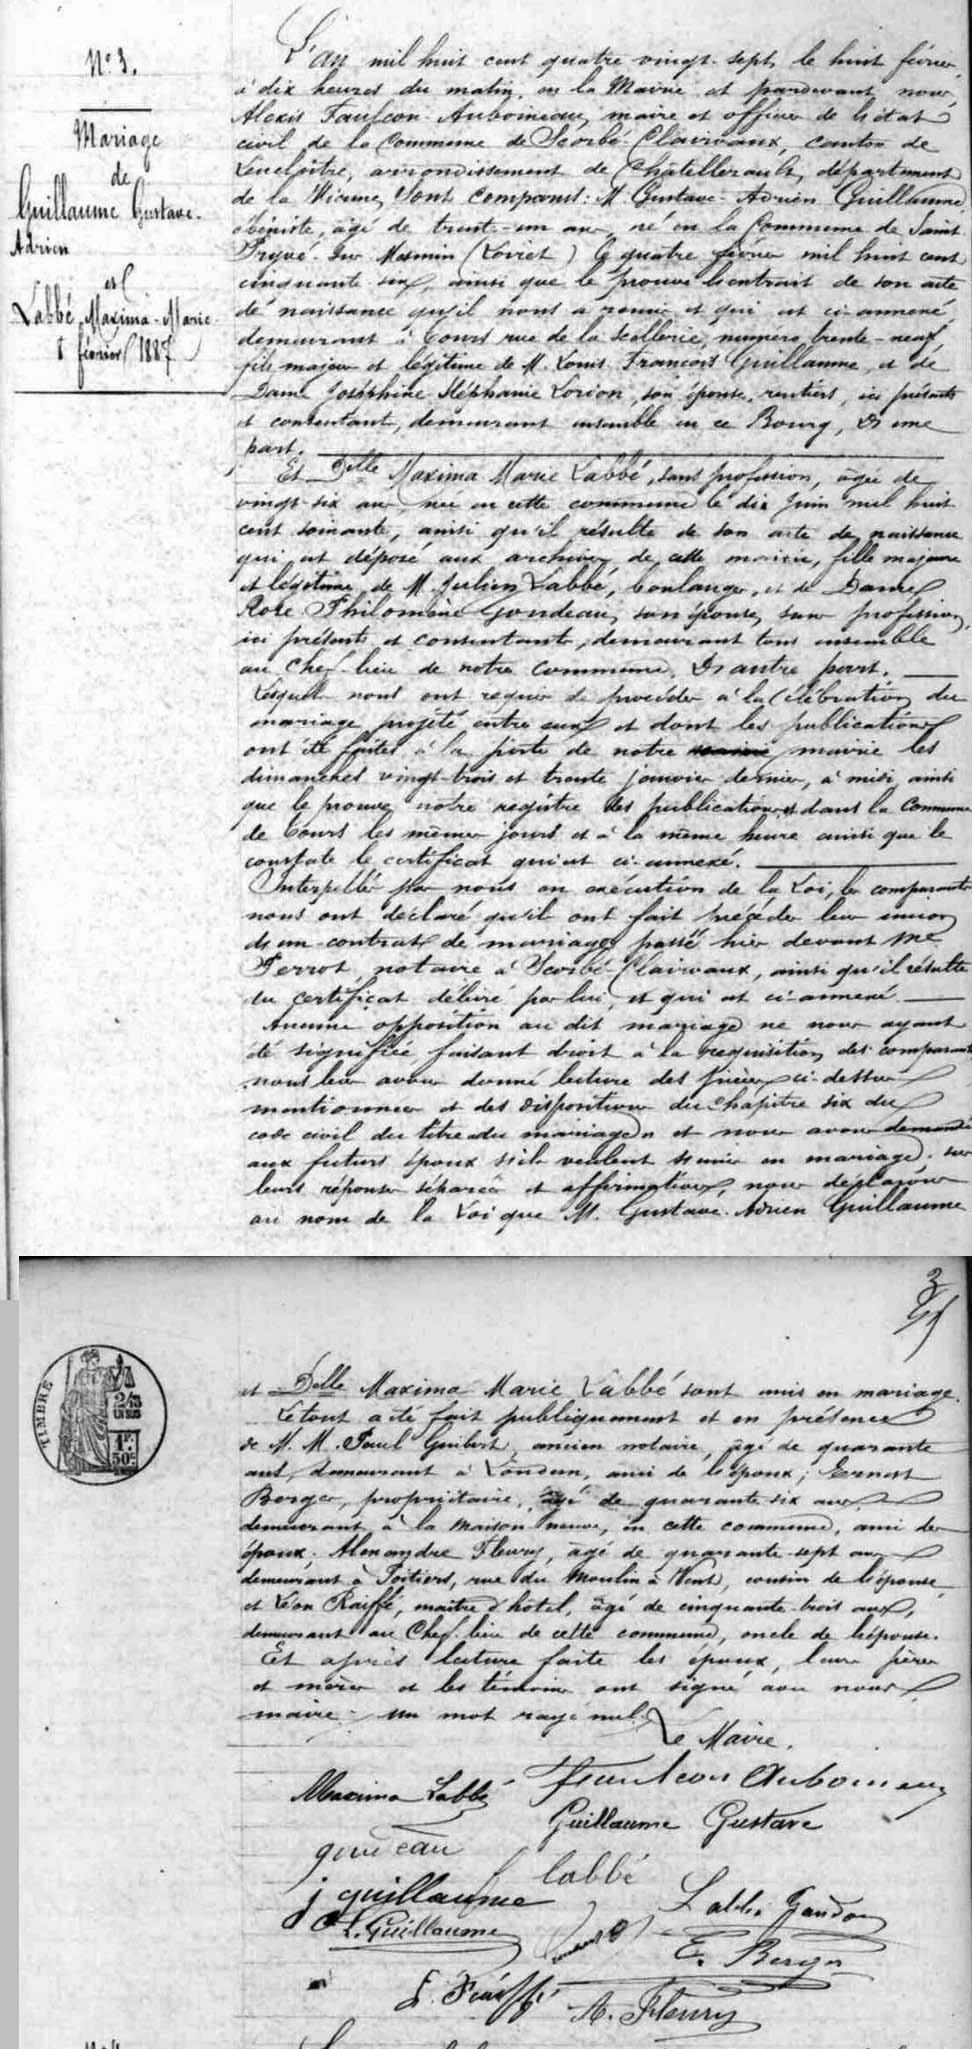 N° 3.
Mariage
de
Guillaume Gustave-
Adrien
et
Labbé Maxima-Marie
8 février 1887
L'an mil huit cent quatre vingt-sept, le huit février,
à dix heures du matin, en la Mairie et pardevant nous
Alexis Faulcon-Auboineau, maire et officier de l'état
civil de la Commune de Scorbé-Clairvaux, canton de
Lencloître, arrondissement de Châtellerault, département
de la Vienne, Sont comparus: M. Gustave-Adrien Guillaume
ébéniste, âgé de trente-un ans, né en la Commune de Saint
Pryvé-St Mesmin (Loiret) le quatre février mil huit cent
cinquante six, ainsi que le prouve l'extrait de son acte
de naissance qu'il nous a remis et qui est ci-annexé,
demeurant à Tours rue de la Scellerie, numéro trente-neuf,
fils majeur et légitime de M. Louis François Guillaume et de
Dame Joséphine Stéphanie Lorion, son épouse, rentiers, ici présents
et consentant, demeurant ensemble en ce Bourg, D'une
part.
Et Delle Maxima Marie Labbé, sans profession, âgée de
vingt-six ans, née en cette commune le dix Juin mil huit
cent soixante, ainsi qu'il résulte de son acte de naissance
qui est déposé aux archives de cette mairie, fille majeure
et légitime de M. Julien Labbé, boulanger, et de Dame
Rose Philomène Goudeau, son épouse, sans profession,
ici présents et consentants, demeurant tous ensemble
au Chef lieu de notre Commune, D'autre part.
Lesquels nous ont requis de procéder à la Célébration du
mariage projeté entre eux et dont les publications
ont été faites à la porte de notre mairie les
dimanches vingt-trois et trente janvier dernier, à midi, ainsi
que le prouve notre registre des publications et dans la Commune
de Tours les mêmes jours et à la même heure ainsi que le
constate le certificat qui est ci-annexé.
Interpellés par nous en exécution de la Loi, les comparants
nous ont déclaré qu'ils ont fait précéder leur union
d'un contrat de mariage passé hier devant Me
Perrot, notaire à Scorbé-Clairvaux, ainsi qu'il résulte
du certificat délivré par lui, et qui est ci-annexé.
Aucune opposition au dit mariage ne nous ayant
été signifiée faisant droit à la requisition des comparants
nous leur avons donné lecture des pièces ci-dessus
mentionnées et des dispositions du chapitre six du
code civil du titre « du mariage » et nous avons demandé
aux futurs époux s'ils veulent s'unir en mariage. sur
leurs réponses séparées et affirmatives, nous déclarons
au nom de la Loi que M. Gustave-Adrien Guillaume
3
TIMBRE
2/10 EN SUS
1F. 50c.
et Delle Maxima Marie Labbé sont unis en mariage.
Le tout a été fait publiquement et en présence
de M. M. Paul Guibert, ancien notaire, âgé de quarante
ans, demeurant à Loudun, ami de l'époux; Ernest
Berger, propriétaire, âgé de quarante-six ans
demeurant à la maison neuve, en cette commune, ami des
époux; Alexandre Fleury, âgé de quarante-sept ans
demeurant à Poitiers, rue du Moulin à Vent, cousin de l'épouse
et Léon Raiffé, maître d'hôtel, âgé de cinquante-trois ans,
demeurant au Chef-lieu de cette commune, oncle de l'épouse.
Et après lecture faite les époux, leurs pères
et mères et les témoins ont signé avec nous
maire. un mot rayé nul.
Le Maire.
Maxima Labbé
Faulcon Auboineau
Guillaume Gustave
goudeau
labbé
j guillaume
L. Guillaume
E. Berger
L. Raiffé
A. Fleury